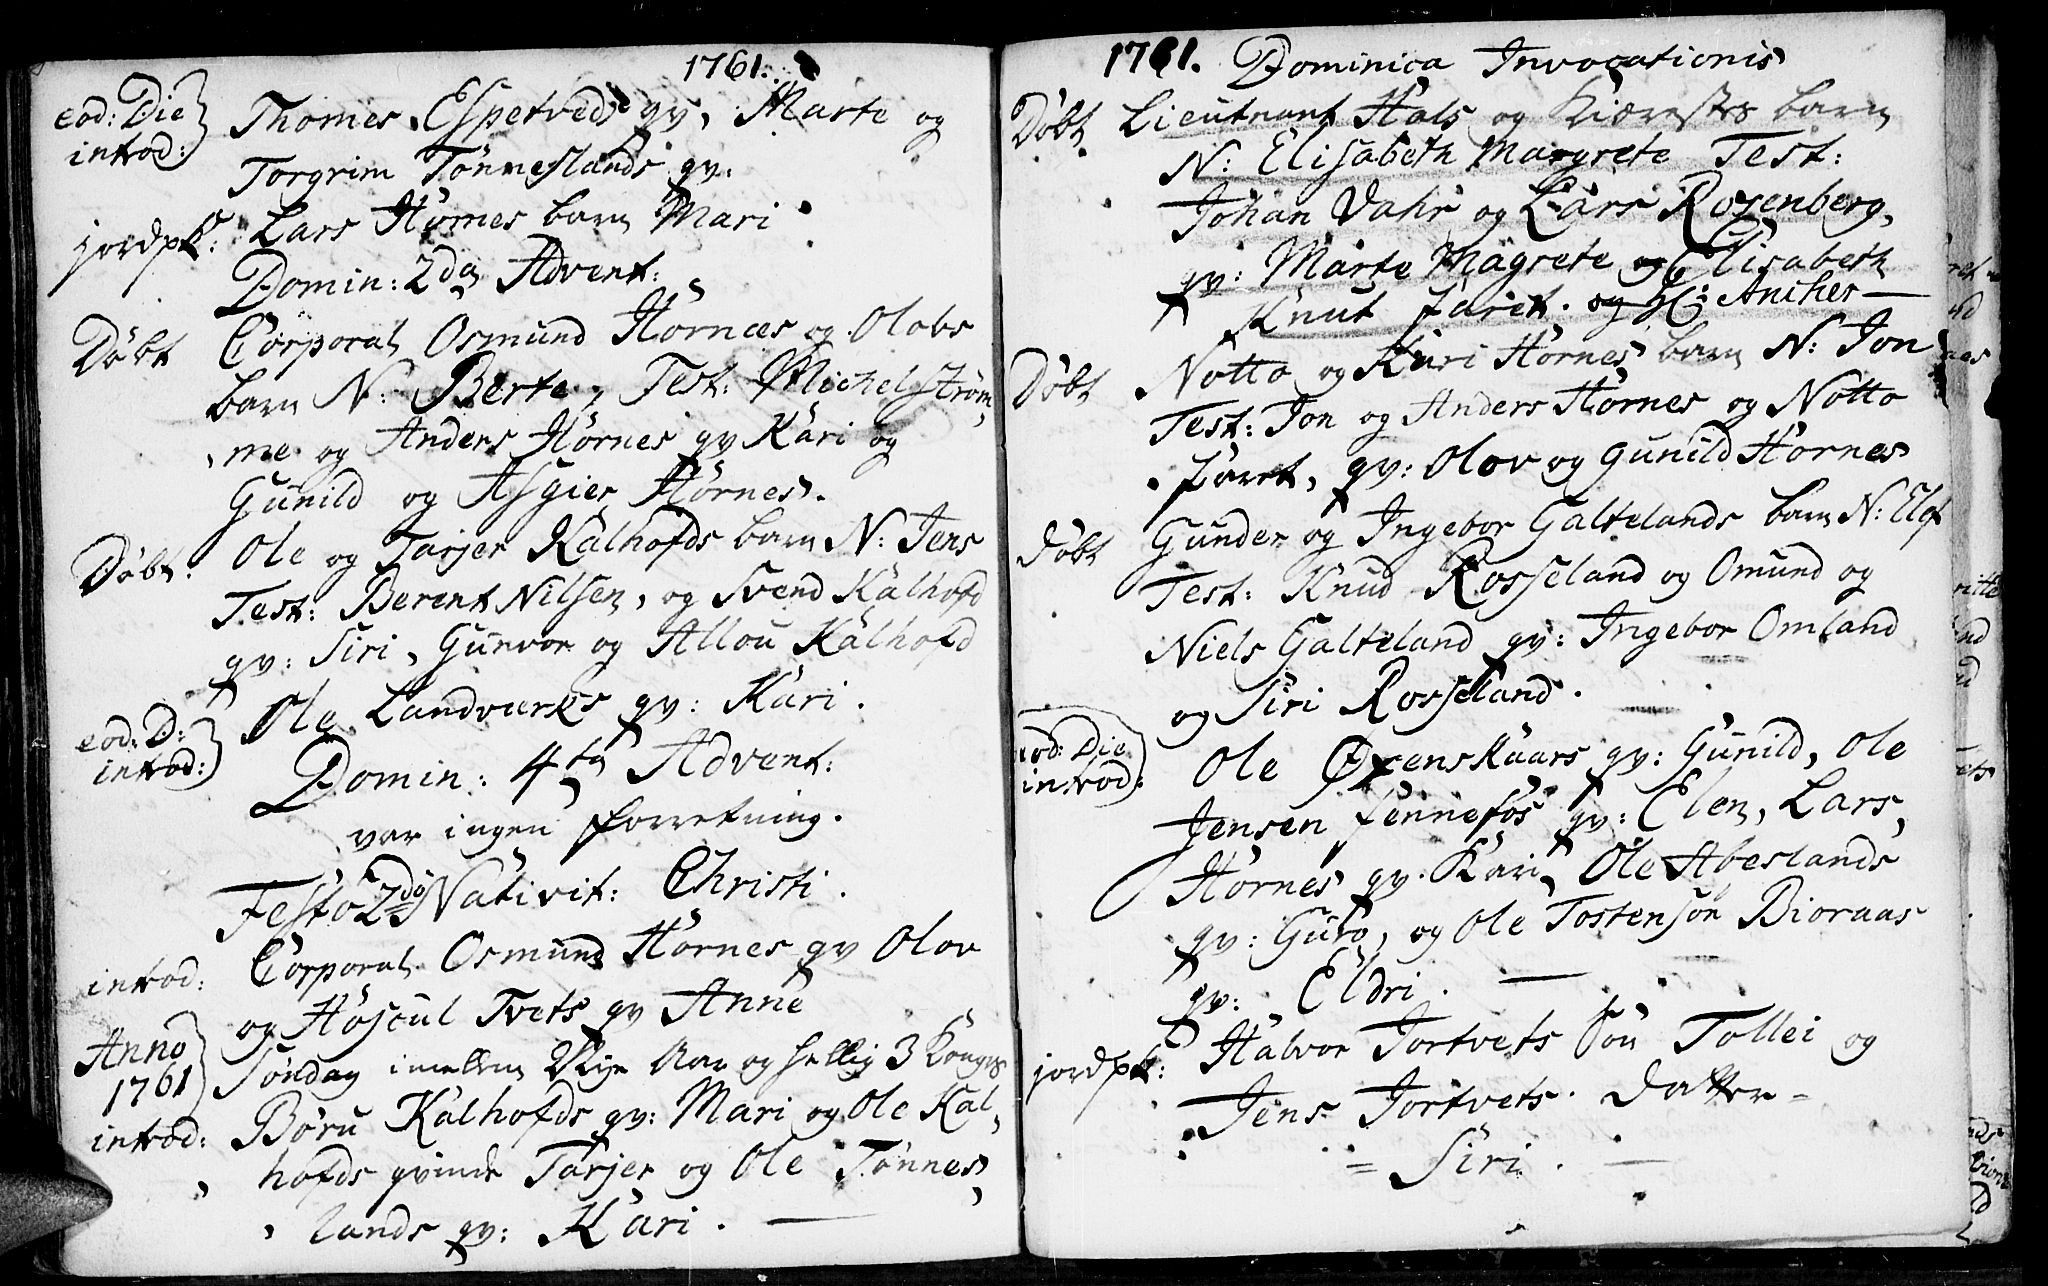 1761.
eod: Die
introd:
Thomes Espetveds gv. Marte og
Torgrim Tønneslands gv:
jordpk: Lars Hornes barn Mari
Domin: 2da Advent:
Døbt Corporal Osmund Hornæs og Olovs
barn N: Berte, Test: Michel Strøm
me og Anders Hornes gv Kari og
Gunild og Asgier Hornes.
Døbt. Ole og Tarjer Kalhofds barn N: Jens
Test: Berent Nilsen, og Svend Kalhofd
gv: Siri, Gunvor og Allou Kalhofd
eod: D:
introd:
Ole Landværks gv: Kari.
Domin: 4ta Advent:
var ingen forretning.
Festo 2do Nativit: Christi.
introd: Corporal Osmund Hornes gv Olov
og Høscul Tvets gv Anne
Anno
1761
Søndag imellem Nye Aar og hellig 3 Konger
introd: Børu Kalhofds gv: Mari og Ole Kal,
hofds qvinde Tarjer og Ole Tønnes,
lands gv: Kari.
1761. Dominica Invocationis
Døbt Lieutnant Hals og Kiærestes barn
N: Elisabeth Margrete Test:
Johan Dahr og Lars Rosenberg,
gv: Marte Magrete og Elisabeth
Knut Faret. og H: Ancher
Døbt Notto og Kari Hornes barn N: Jon
Test: Jon og Anders Hornes og Notto
Faret, gv: Olov og Gunild Hornes
Døbt Gunder og Ingebor Galtelands barn N: Elef
Test: Knud Rosseland og Omund og
Niels Galteland gv: Ingebor Omland
og Siri Rosseland.
eod: Die
introd:
Ole Øxenskaars gv: Gunild, Ole
Jensen Fennefos gv: Elen, Lars,
Hornes gv. Kari, Ole Abeslands
gv: Guro, og Ole Tostenson Bioraas
gv: Eldri.
jordpk: Halvor Tortvets Søn Tollei og
Jens Tortvets. Datter
Siri.